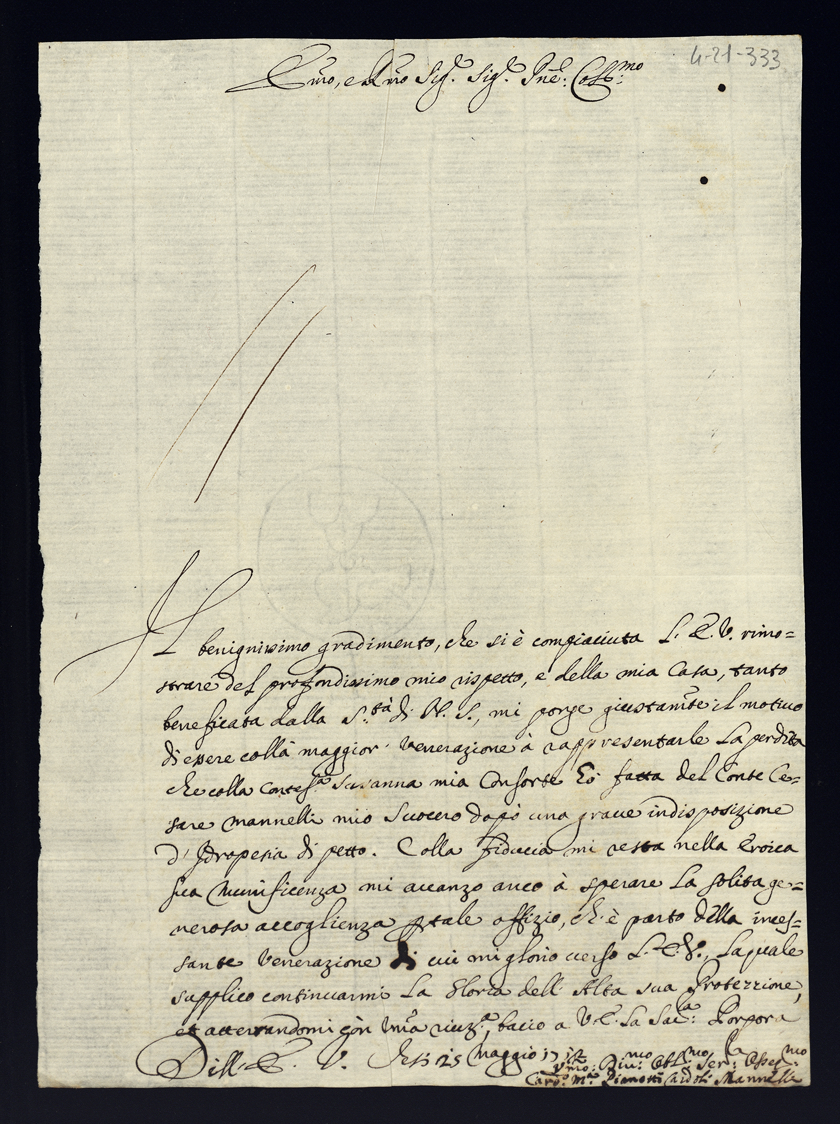 4-21-333
Emo, e Rmo Sig.r Sig.r Pne: Col.mo
Il benignissimo gradimento, che si è compiaciuta L'. E. V. rimo=
strare del profondissimo mio rispetto, e della mia Casa, tanto
beneficata dalla S.tà di N. S., mi porge giustamte: il motivo
di essere colla maggior' venerazione à rappresentarle La perdita
che colla Contessa Susanna mia Consorte hò fatta del Conte Ce=
sare Mannelli mio Suocero dopò una grave indisposizione
d'Idropesia di petto. Colla fiducia mi resta nella Eroica
sua Munificenza mi avanzo anco à sperare La solita ge=
nerosa accoglienza tale offizio, ch'è parto della inces=
sante venerazione di cui mi glorio verso L'. E. V., La quale
supplico continuarmi La Gloria dell'Alta sua Protezzione,
et atterrandomi con bacio a V. E. La Sac.a Porpora
Dell'E. V. Jesi 25 Maggio
Mannelli